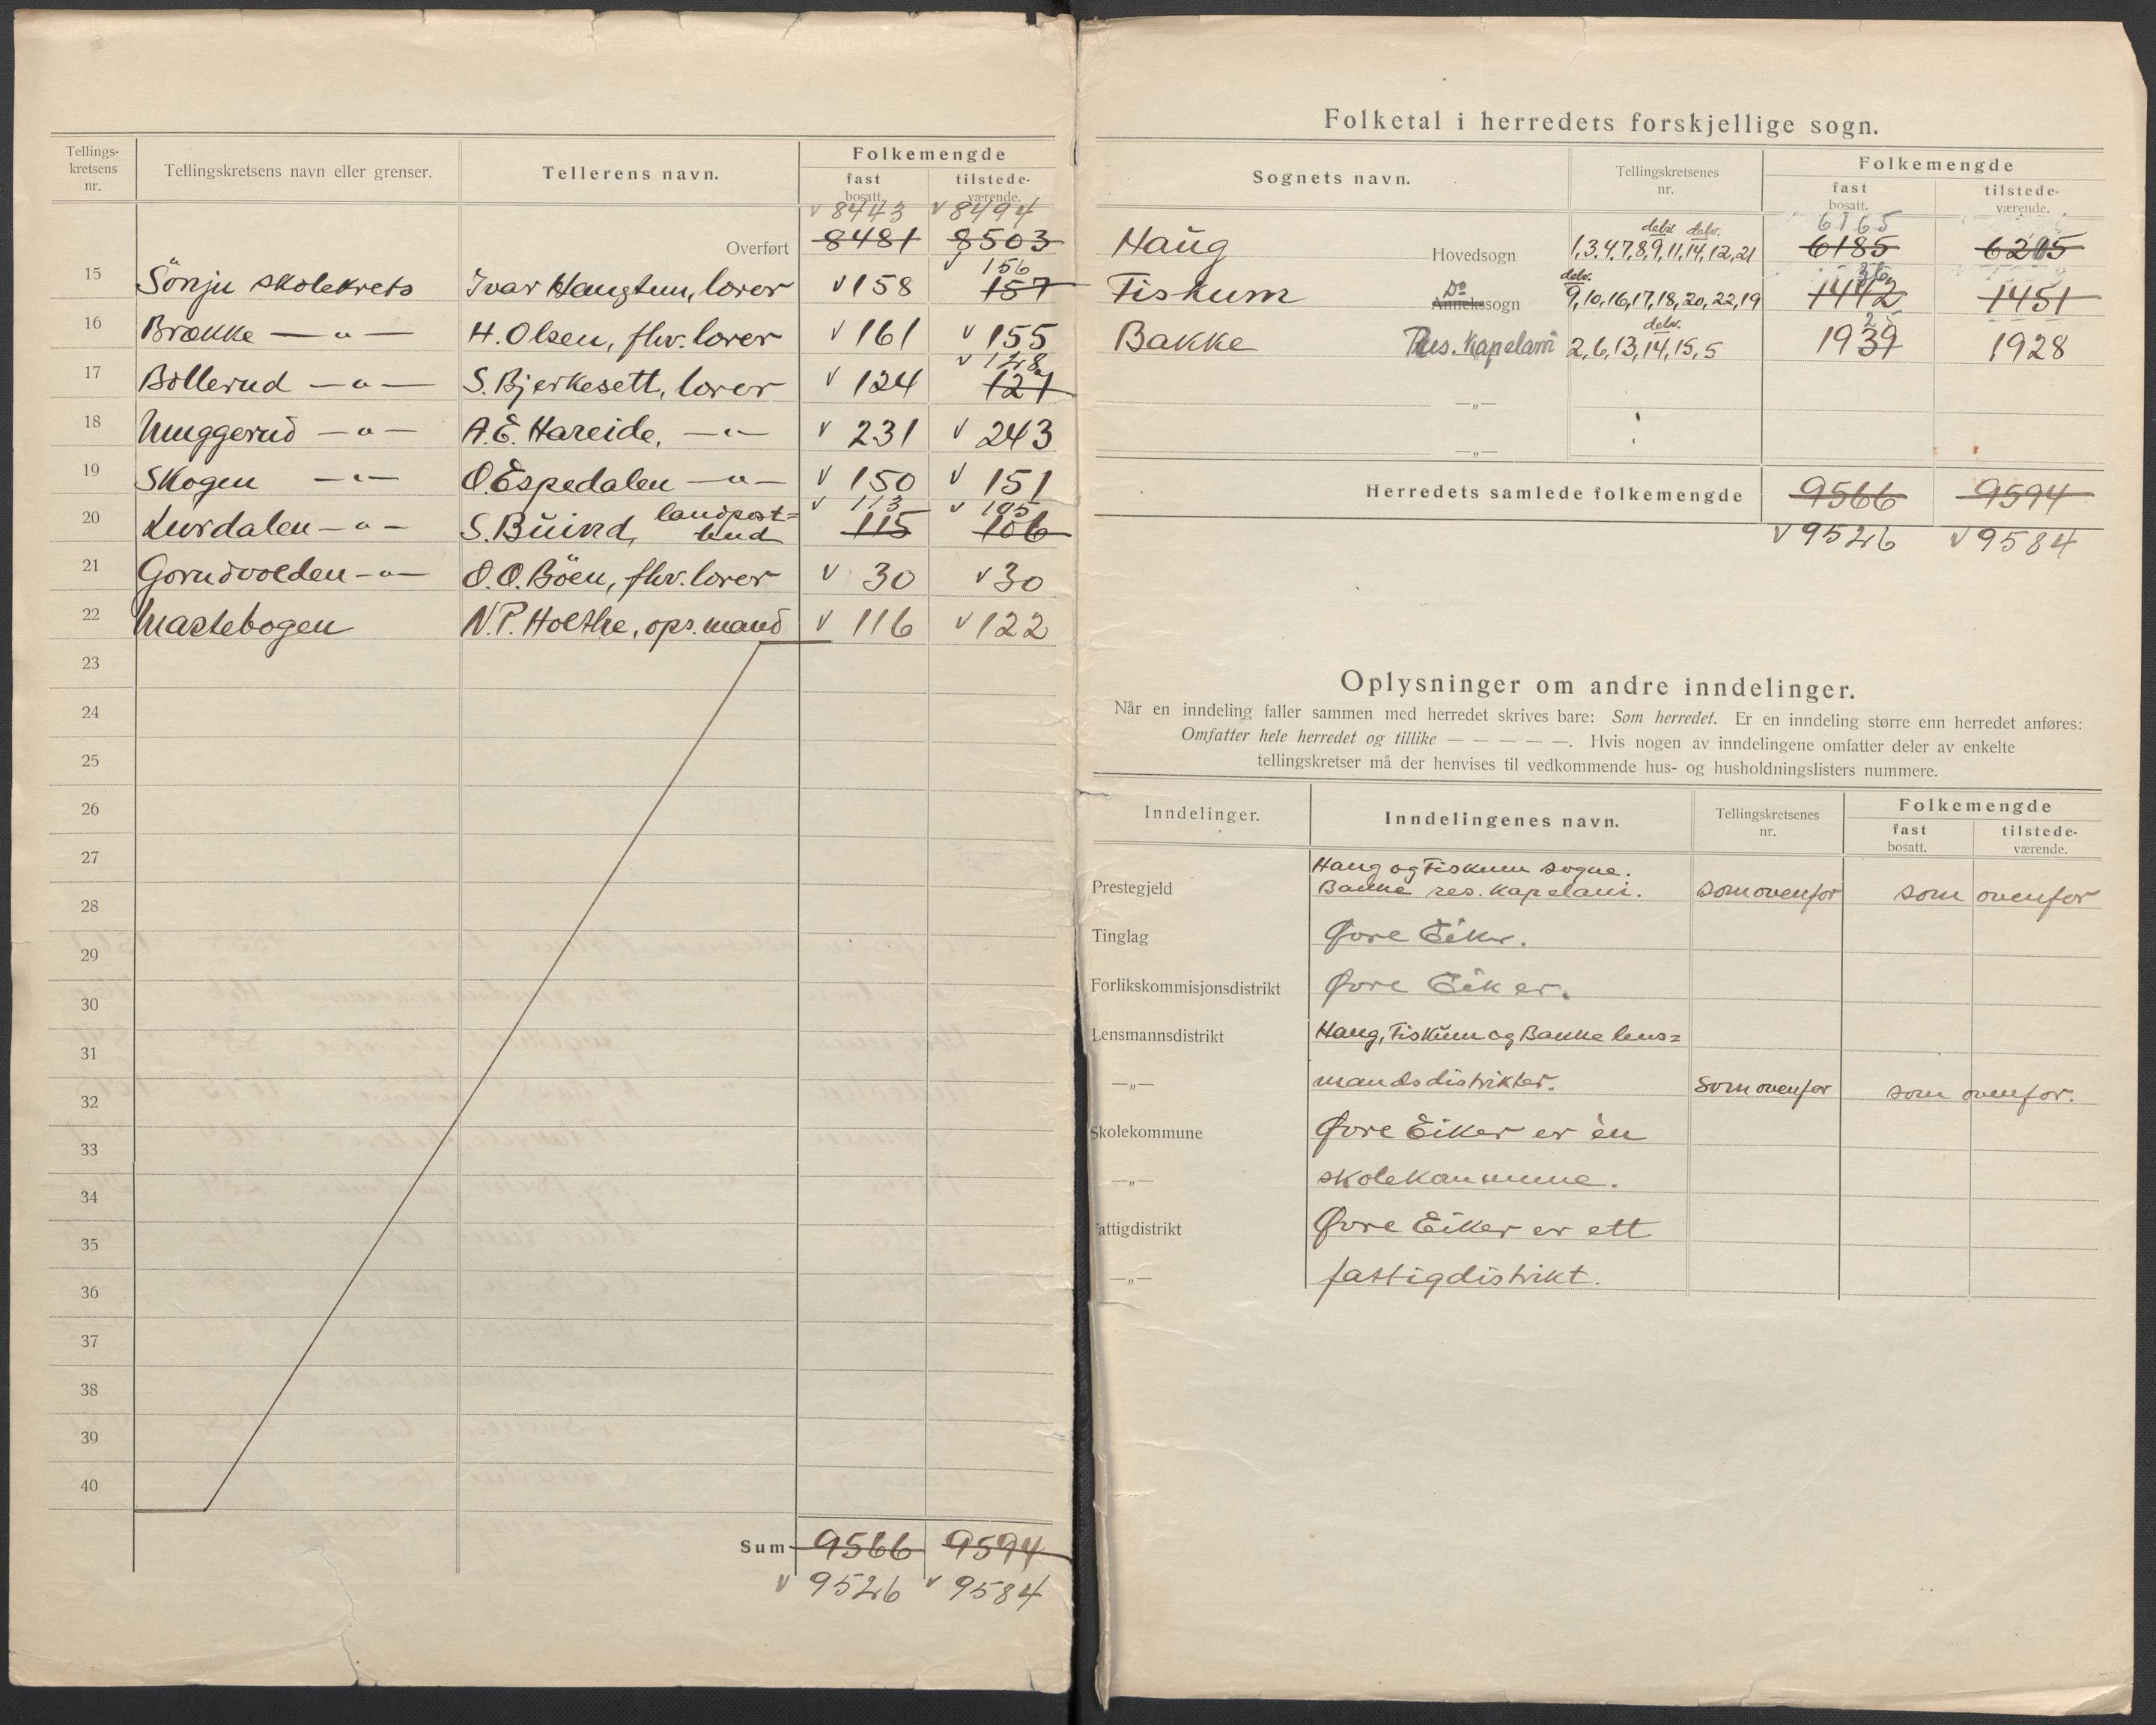 Tellings-
kretsens
nr.
Tellingskretsens navn eller grenser.
Tellerens navn.
Folkemengde
fast
bosatt.
tilstede-
værende.
v 8443 v 8494
Overført 8481 8503
156
15 Sönju skolekrets Ivar Haugtun, lærer v 158 v 157
16 Brække — „ — H. Olsen, fhv. lærer v 161 v 155
v 128
17 Böllerud — „ — S. Bjerkesett, lærer v 124 127
18 Muggerud — „ — A. E. Hareide, — „ — v 231 v 243
19 Skogen — „ — O. Espedalen — „ — v 150 v 151
v 113 v 105
20 Lurdalen — „ — S. Buind, landpost= bud 115 106
21 Gorudvolden — „ — O. O. Böen, fhv. lærer v 30 v 30
22 Mastebogen N. P. Holthe, ops. mand v 116 v 122
23
24
25
26
27
28
29
30
31
32
33
34
35
36
37
38
39
40
Sum 9566 9594
v 9526 v 9584
Folketal i herredets forskjellige sogn.
Sognets navn.
Tellingskretsenes
nr.
Folkemengde
fast
bosatt.
tilstede-
værende.
delv. delv. 6165
Haug Hovedsogn 1,3,4,7,8,9,11,14,12,21 6185 6205
delv. 36
Fiskum Do Annekssogn 9,10,16,17,18,20,22,19 1442 1451
delv. 25
Bakke Res. Kapelani 2,6,13,14,15,5 1939 1928
—„—
—„—
Herredets samlede folkemengde 9566 9594
v 9526 v 9584
Oplysninger om andre inndelinger.
Når en inndeling faller sammen med herredet skrives bare: Som herredet. Er en inndeling større enn herredet anføres:
Omfatter hele herredet og tillike — — — — —. Hvis nogen av inndelingene omfatter deler av enkelte
tellingskretser må der henvises til vedkommende hus- og husholdningslisters nummere.
Inndelinger.
Inndelingenes navn.
Tellingskretsenes
nr.
Folkemengde
fast
bosatt.
tilstede-
værende.
Haug og Fiskum sogne.
Prestegjeld Bakke res. kapelani. som ovenfor som ovenfor
Tinglag Øvre Eiker.
Forlikskommisjonsdistrikt Øvre Eiker.
Lensmannsdistrikt Haug, Fiskum og Bakke lens=
—„— mandsdistrikter. Som ovenfor som ovenfor.
Skolekommune Øvre Eiker er èn
—„— skolekommune.
Fattigdistrikt Øvre Eiker er ett
—„— fattigdistrikt.